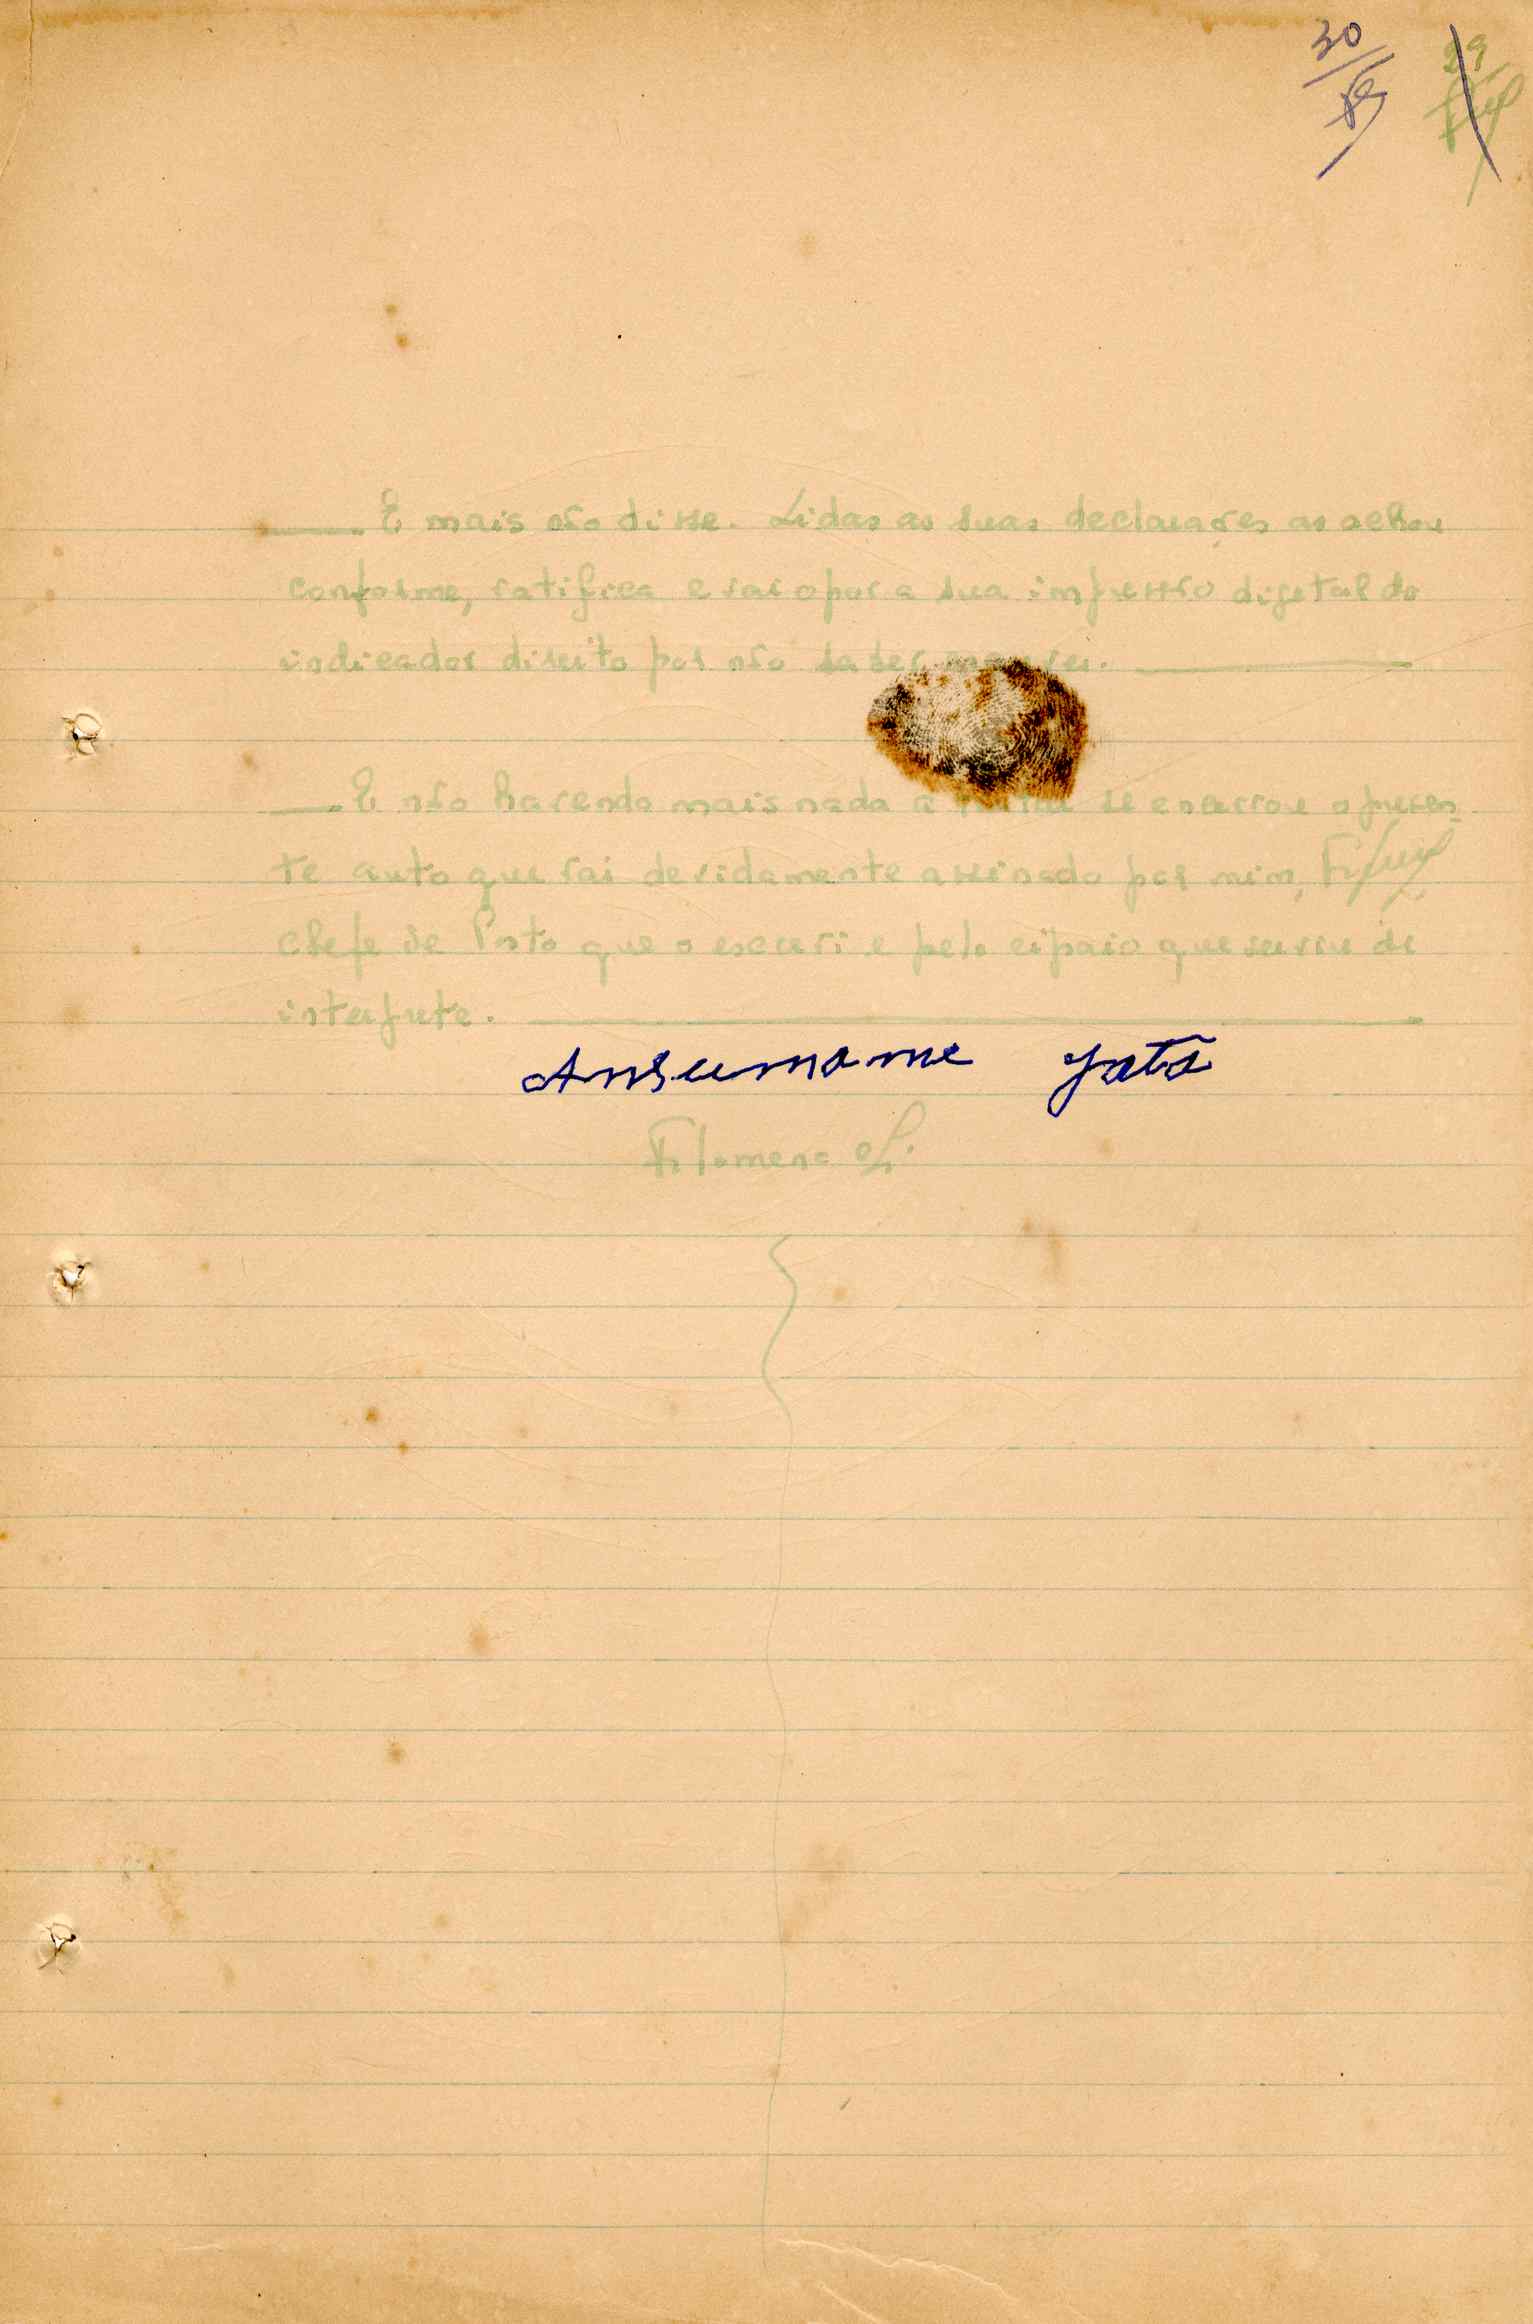 30
29
E mais não disse. Lidas as suas declarações as achou
conforme, ratifica e vai opor a sua impressão digital do
indicador direito por não saber assinar.
E não havendo mais nada a se encerrou o presen-
te auto que vai devidamente assinado por mim,
chefe de Posto que o escrevi e pelo cipaio que serviu de
interprete.
Ansumane Jatá
Filomeno